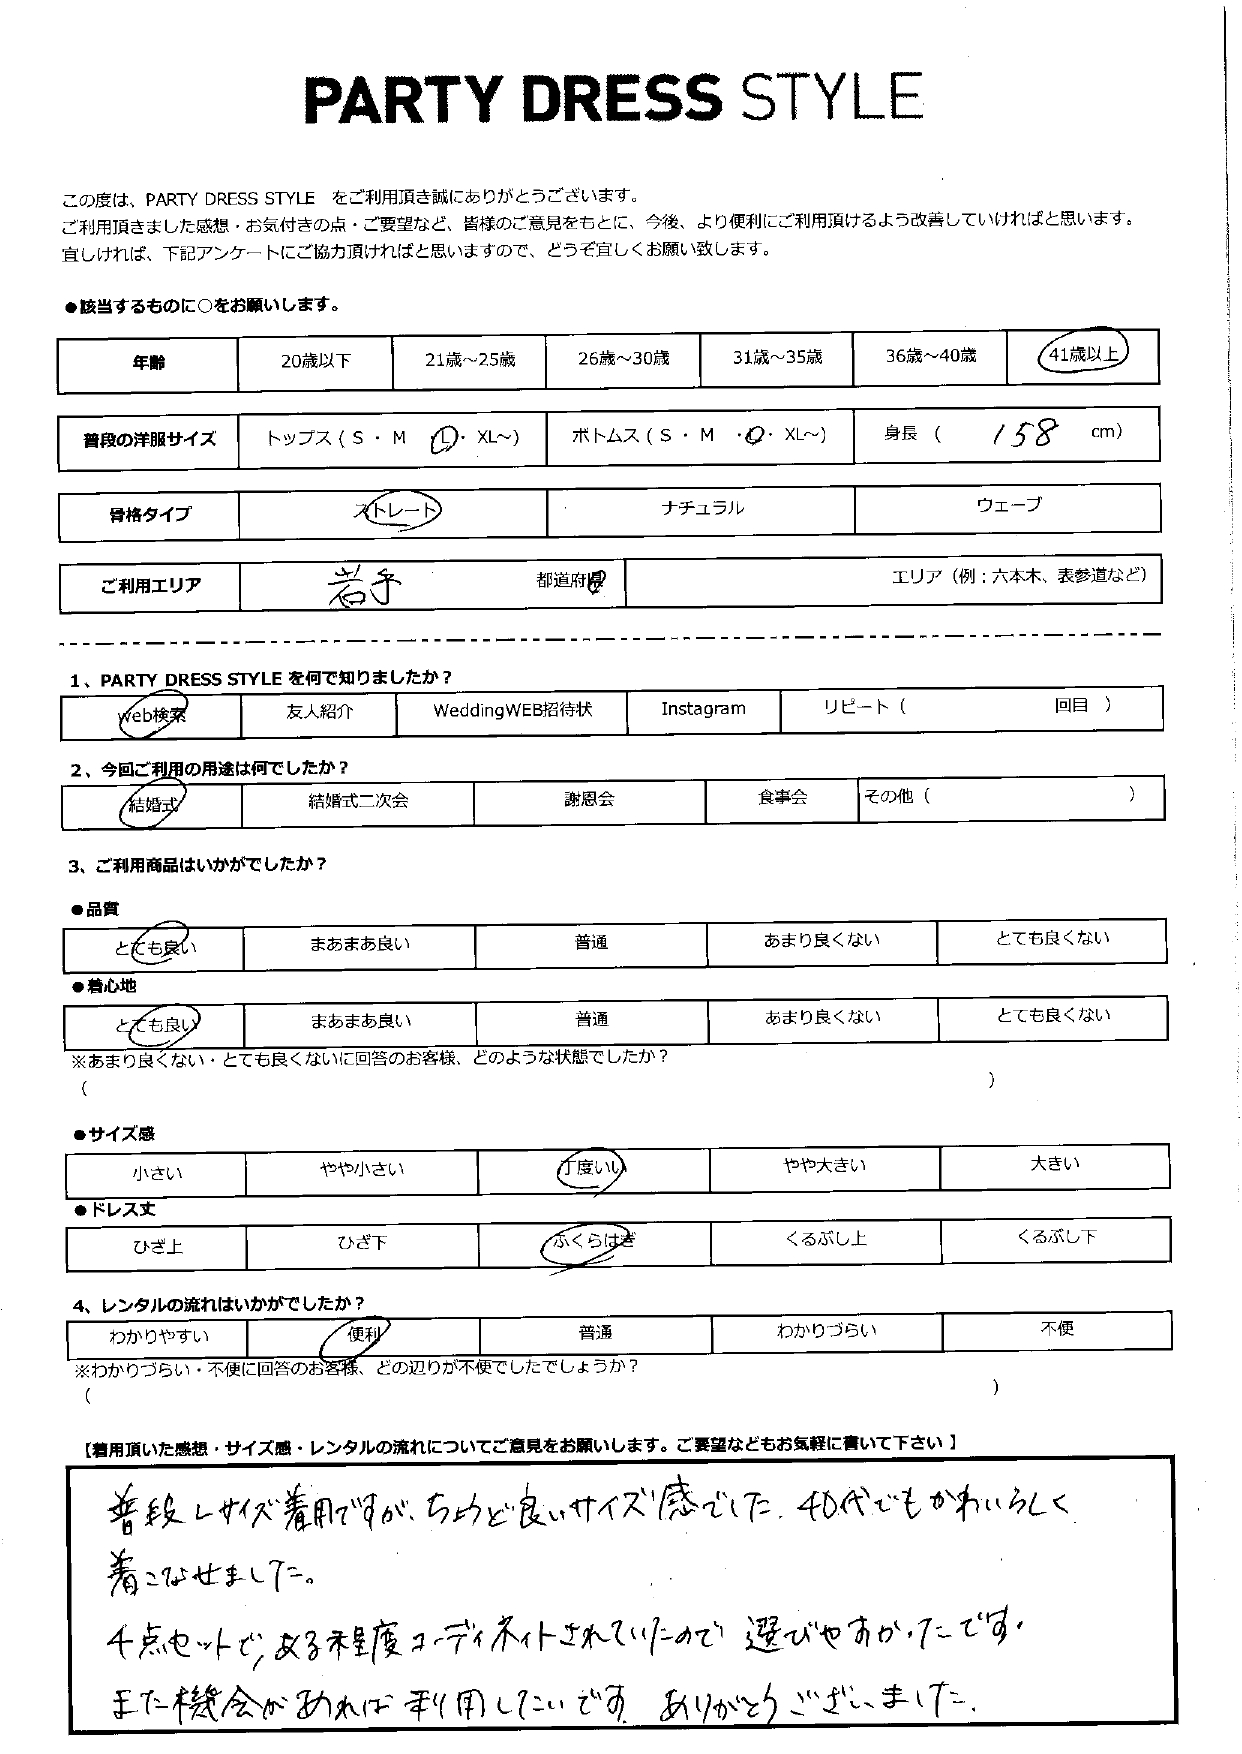 PARTY DRESS STYLE
この度は、PARTY DRESS STYLE をご利用頂き誠にありがとうございます。
ご利用頂きました感想・お気付きの点・ご要望など、皆様のご意見をもとに、今後、より便利にご利用頂けるよう改善していければと思います。
宜しければ、下記アンケートにご協力頂ければと思いますので、どうぞ宜しくお願い致します。
●該当するものに○をお願いします。
年齢 20歳以下 21歳～25歳 26歳～30歳 31歳～35歳 36歳～40歳 41歳以上
普段の洋服サイズ トップス ( S ・ M L ・ XL～) ボトムス ( S ・ M ・ L ・ XL～) 身長 ( 158 cm)
骨格タイプ ストレート ナチュラル ウェーブ
ご利用エリア 岩手 都道府県 エリア（例：六本木、表参道など）
1、PARTY DRESS STYLE を何で知りましたか？
web検索 友人紹介 WeddingWEB招待状 Instagram リピート（ 回目 ）
2、今回ご利用の用途は何でしたか？
結婚式 結婚式二次会 謝恩会 食事会 その他（ ）
3、ご利用商品はいかがでしたか？
●品質
とても良い まあまあ良い 普通 あまり良くない とても良くない
●着心地
とても良い まあまあ良い 普通 あまり良くない とても良くない
※あまり良くない・とても良くないに回答のお客様、どのような状態でしたか？
（ ）
●サイズ感
小さい やや小さい 丁度いい やや大きい 大きい
●ドレス丈
ひざ上 ひざ下 ふくらはぎ くるぶし上 くるぶし下
4、レンタルの流れはいかがでしたか？
わかりやすい 便利 普通 わかりづらい 不便
※わかりづらい・不便に回答のお客様、どの辺りが不便でしたでしょうか？
（ ）
【着用頂いた感想・サイズ感・レンタルの流れについてご意見をお願いします。ご要望などもお気軽に書いて下さい 】
普段Lサイズ着用ですが、ちょうど良いサイズ感でした。40代でもかわいらしく
着こなせました。
4点セットで、ある程度コーディネイトされていたので 選びやすかったです。
また機会があれば利用したいです。ありがとうございました。